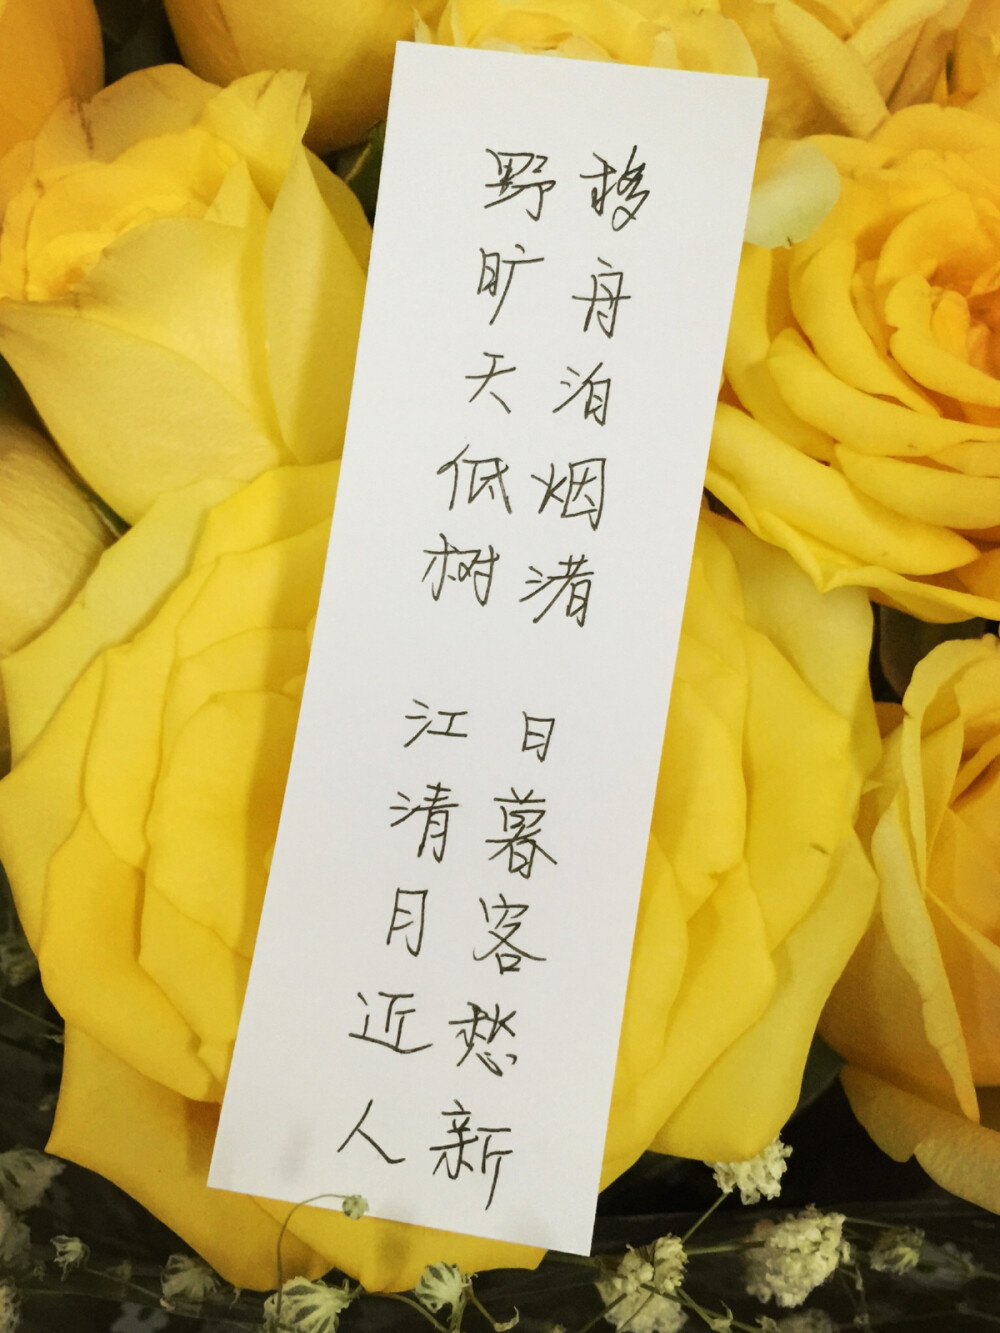 移舟泊烟渚 日暮客愁新
野旷天低树 江清月近人